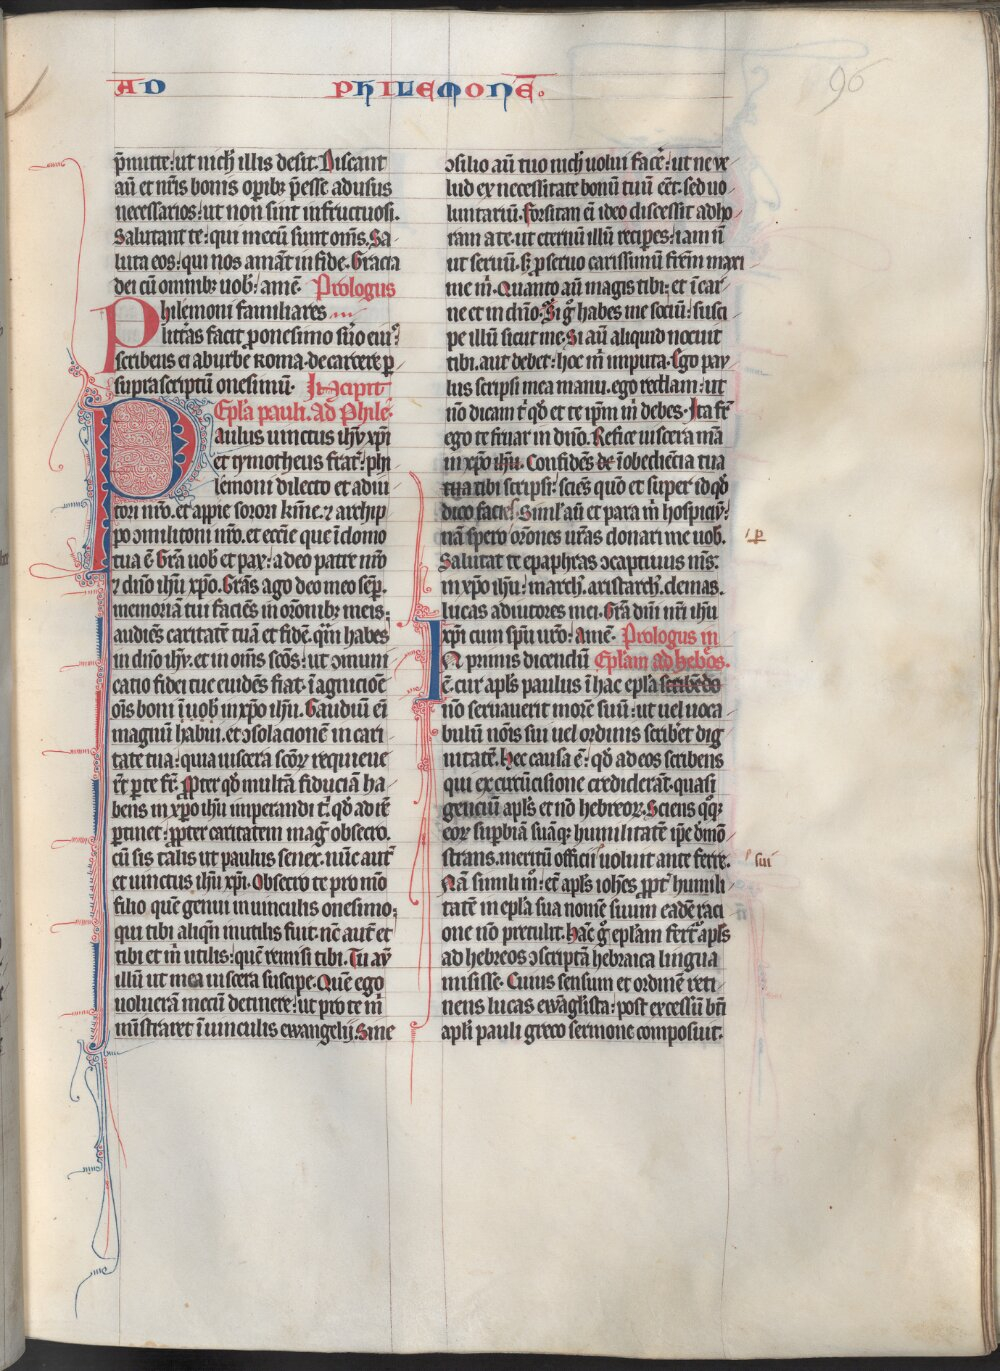 AD PHILEMONE̅.
96
p̄mitte: ut nich̄ illis desit. Discant
aū et nr̄is bonis op̄ibꝫ p̄esse ad usus
necessarios: ut non sint infructuosi.
Salutant te: qui mecū sunt om̄s. Sa
luta eos: qui nos amāt in fide. Gracia
dei cū omnibꝫ uob̄: amē. Prologus
Philemoni familiares
litt̄as facit p̱ onesimo s̄uo eiꝰ:
scribens ei ab urbe roma. de carcere p̱
supra scriptū onesimū. Incipit
Ep̄la pauli. ad Phile
Paulus uinctus ih̄u xp̄i
et tymotheus frat̄: phi
lemoni dilecto et adiu
tori nr̄o. et appie sorori kr̄ine. ⁊ archip
po ꝯmilitoni nr̄o. et ecc̄ie que ī domo
tua ē. Gr̄a uob̄ et pax: a deo patre nr̄o
⁊ dn̄o ih̄u xp̄o. Gr̄as ago deo meo sēp̱.
memoriā tui faciēs in or̄onibꝫ meis:
audiēs caritatē tuā et fidē. quī habes
in dn̄o ih̄u. et in om̄s sc̄os: ut ꝯmuni
catio fidei tue euidēs fiat. ī agnicioē
oīs boni ī uob̄ in xp̄o ih̄u. Gaudiū ei
magnū habui. et ꝯsolacionē in cari
tate tua: quia uiscera sc̄oꝝ requieue
r̄t p̱ te fr̄. Pp̄ter qd̄ multā fiduciā ha
bens in xp̄o ih̄u imperandi t̄. qd̄ ad rē
p̱tinet: pp̄ter caritatem maḡ obsecro.
cū sis talis ut paulus senex. nūc aut̄
et uinctus ih̄u xp̄i. Obsecro te pro m̄o
filio quē genui in uinculis onesimo:
qui tibi aliqn̄ inutilis fuit. nc̄ aut̄ et
tibi et m̄ utilis: quē remisi tibi. Tu aū
illū ut mea uiscera suscipe. Quē ego
uoluerā mecū detinere: ut pro te m̄
mīstraret ī uinculis ewangelij. Sine
ꝯsilio aū tuo nich̄ uolui facē: ut ne ve
lud ex necessitate bonū tuū eēt. sed uo
luntariū. Forsitan ei ideo discessit ad ho
ram a te. ut eternū illū recipes: iam n̄
ut seruū. sꝫ p̱ seruo carissimū fr̄em maxi
me m̄. Quanto aū magis tibi: et ī car
ne et in dn̄o. Si g̊ habes me sociū: susci
pe illū sicut me. Si aū aliquid nocuit
tibi. aut debet: hoc m̄ imputa. Ego pau
lus scripsi mea manu. ego reddam: ut
nō dicam t̄ qd̄ et te ip̄m m̄ debes. Ita fr̄
ego te fruar in dn̄o. Refice uiscera mā
in xp̄o ih̄u. Confidēs de īobediētia tua
tua tibi scripsi: sciēs quō et super id qd̄
dico facies. Siml̄ aū et para m̄ hospiciū:
nā spero or̄ones ur̄as donari me uob̄.
Salutat te epaphras ꝯcaptiuus m̄s:
in xp̄o ih̄u: march̄. aristarch̄. demas.
lucas adiutores mei. Gr̄a dn̄i nr̄i ih̄u
xp̄i cum sp̄u ur̄o: Amē. Prologus in
In primis dicendū Ep̄lam ad hebr̄os.
ē. cur ap̄ls paulus ī hac ep̄la scribēdo
nō seruauerit morē suū: ut uel uoca
bulū nōis sui uel ordinis scriber̄ dig
nitatē. Hec causa ē: qd̄ ad eos scribens
qui ex circūcisione crediderāt. quasi
genciū ap̄ls et nō hebreoꝝ. Sciens qq̄ꝫ
eoꝝ sup̱biā suāqꝫ humilitatē ip̄e dmō
strans. meritū officii uoluit ante ferre.
Nā simili m̊: et̄ ap̄ls ioh̄es pp̄t̄ humili
tatē in ep̄la sua nomē suum eadē raci
one nō pretulit. Hāc g̊ ep̄lam fert̄ ap̄ls
ad hebreos ꝯscriptā hebraica lingua
misisse. Cuius sensum et ordinē reti
nens lucas ewāgl̄ista: post excessū bt̄i
ap̄li pauli greco sermone composuit.
sui